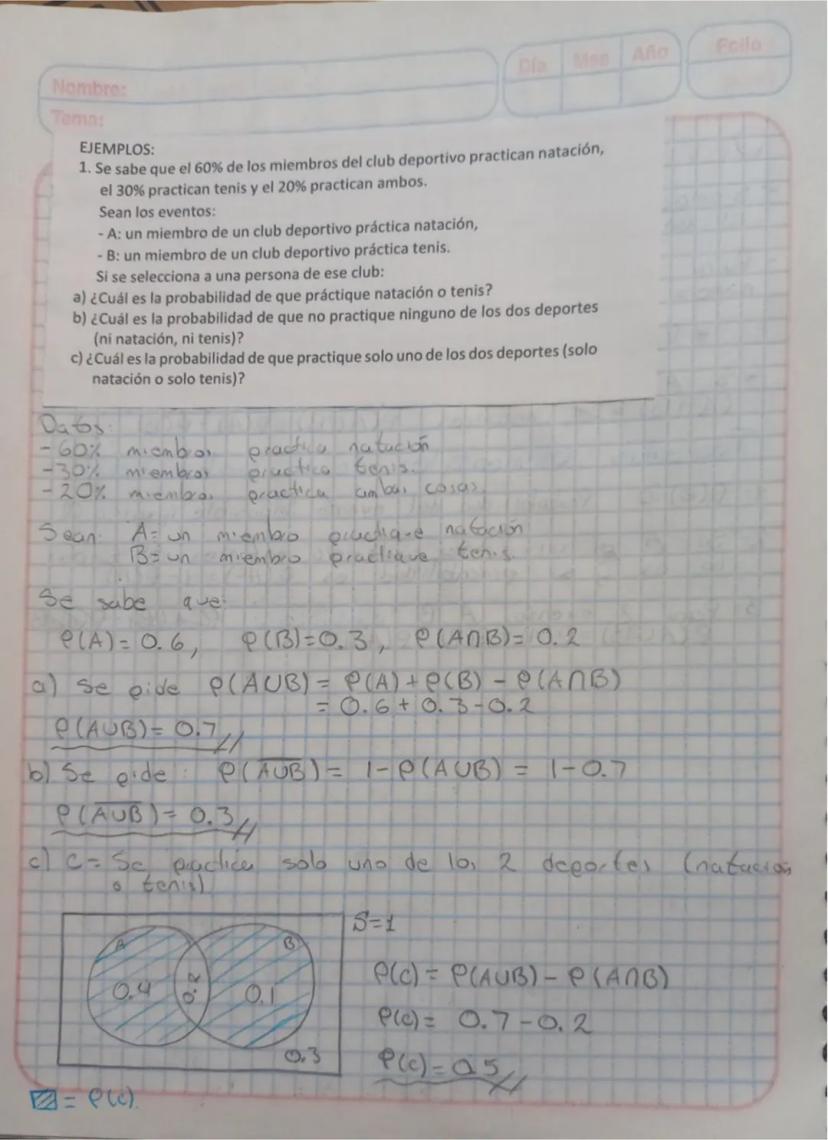 Nombre:
Día Mes Año Folio
Tema:
EJEMPLOS:
1. Se sabe que el 60% de los miembros del club deportivo practican natación,
el 30% practican tenis y el 20% practican ambos.
Sean los eventos:
- A: un miembro de un club deportivo práctica natación,
- B: un miembro de un club deportivo práctica tenis.
Si se selecciona a una persona de ese club:
a) ¿Cuál es la probabilidad de que práctique natación o tenis?
b) ¿Cuál es la probabilidad de que no practique ninguno de los dos deportes
(ni natación, ni tenis)?
c) ¿Cuál es la probabilidad de que practique solo uno de los dos deportes (solo
natación o solo tenis)?
Datos:
- 60% miembros practica natación
- 30% miembros practica tenis.
- 20% miembros practica ambas cosas
Sean: A= un miembro practique natación
B= un miembro practique tenis
Se sabe que:
P(A) = 0.6, P(B)=0.3, P(A∩B)= 0.2
a) Se pide P(A∪B) = P(A)+P(B) - P(A∩B)
= 0.6 + 0.3 - 0.2
P(A∪B)= 0.7//
b) Se pide: P(A̅∪̅B̅) = 1 - P(A∪B) = 1-0.7
P(A̅∪̅B̅) = 0.3//
c) C= Se practice solo uno de los 2 deportes (natación
o tenis)
S=1
A B
0.4 0.2 0.1
0.3
P(C) = P(A∪B) - P(A∩B)
P(C) = 0.7 - 0.2
P(C) = 0.5//
= P(C).